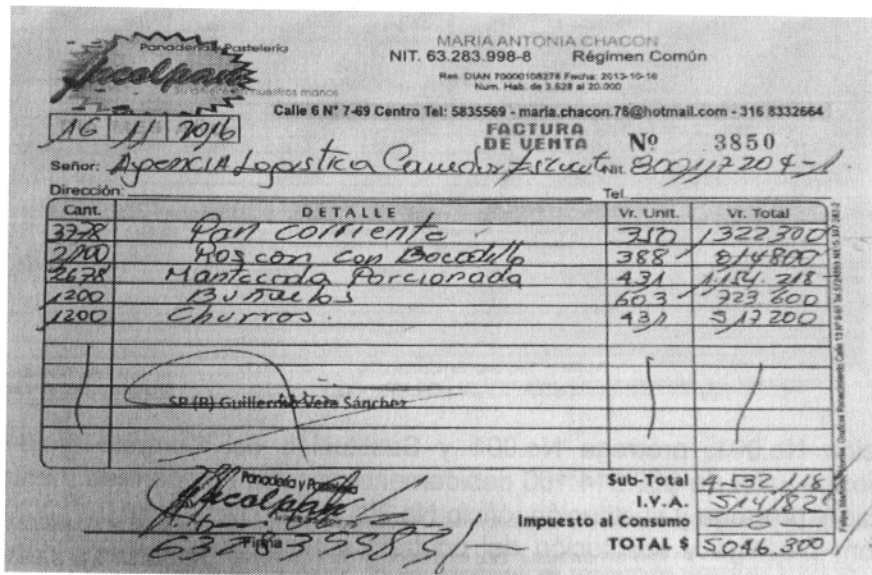 Panadería y Pastelería
Incolpan
en nuestras manos
MARIA ANTONIA CHACON
NIT. 63.283.998-8 Régimen Común
Res. DIAN 70000108278 Fecha: 2013-10-16
Num. Hab. de 3.528 al 20.000
Calle 6 N° 7-69 Centro Tel: 5835569 - maria.chacon.78@hotmail.com - 316 8332664
16 11 2016
FACTURA DE VENTA Nº 3850
Señor: Agencia Logistica Comedor Nit. 800117204-1
Dirección: Tel.
Cant. DETALLE Vr. Unit. Vr. Total
3778 Pan corriente 350 1322300
2100 Roscon con Bocadillo 388 814800
2678 Mantecada Porcionada 431 1.154.218
1200 Buñuelos 603 723600
1200 Churros. 431 517200
SP (R) Guillermo Vera Sánchez
Sub-Total 4.532.118
I.V.A. 514182
Impuesto al Consumo -0-
TOTAL $ 5046.300
Panadería y Pastelería
Incolpan
Firma